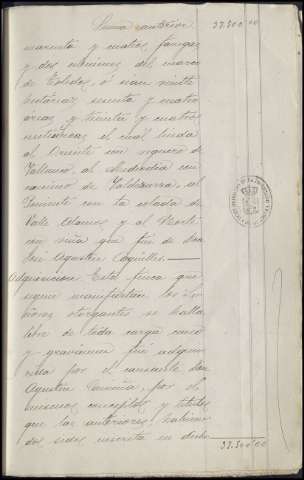 Suma anterior 33.300 00
marenta y cuatro fanegas
y dos nominos del marco
de Toledo, ó sean veinte
hectáreas setenta y cuatro
áreas y treinta y cuatro
centiáreas el cual linda
al Oriente con reguero de
al Mediodía con
camino de al
Poniente con la colada de
Valle y al Norte
con viña que fué de don
José Agustín
Adquisición Esta finca que
según manifiestan los se-
ñores otorgantes se halla
libre de toda carga censo
y gravamen fué adqui-
rida por el causante don
Agustín por el
mismo concepto y títulos
que las anteriores, habien-
do sido inscrita en dicho
33.300 00